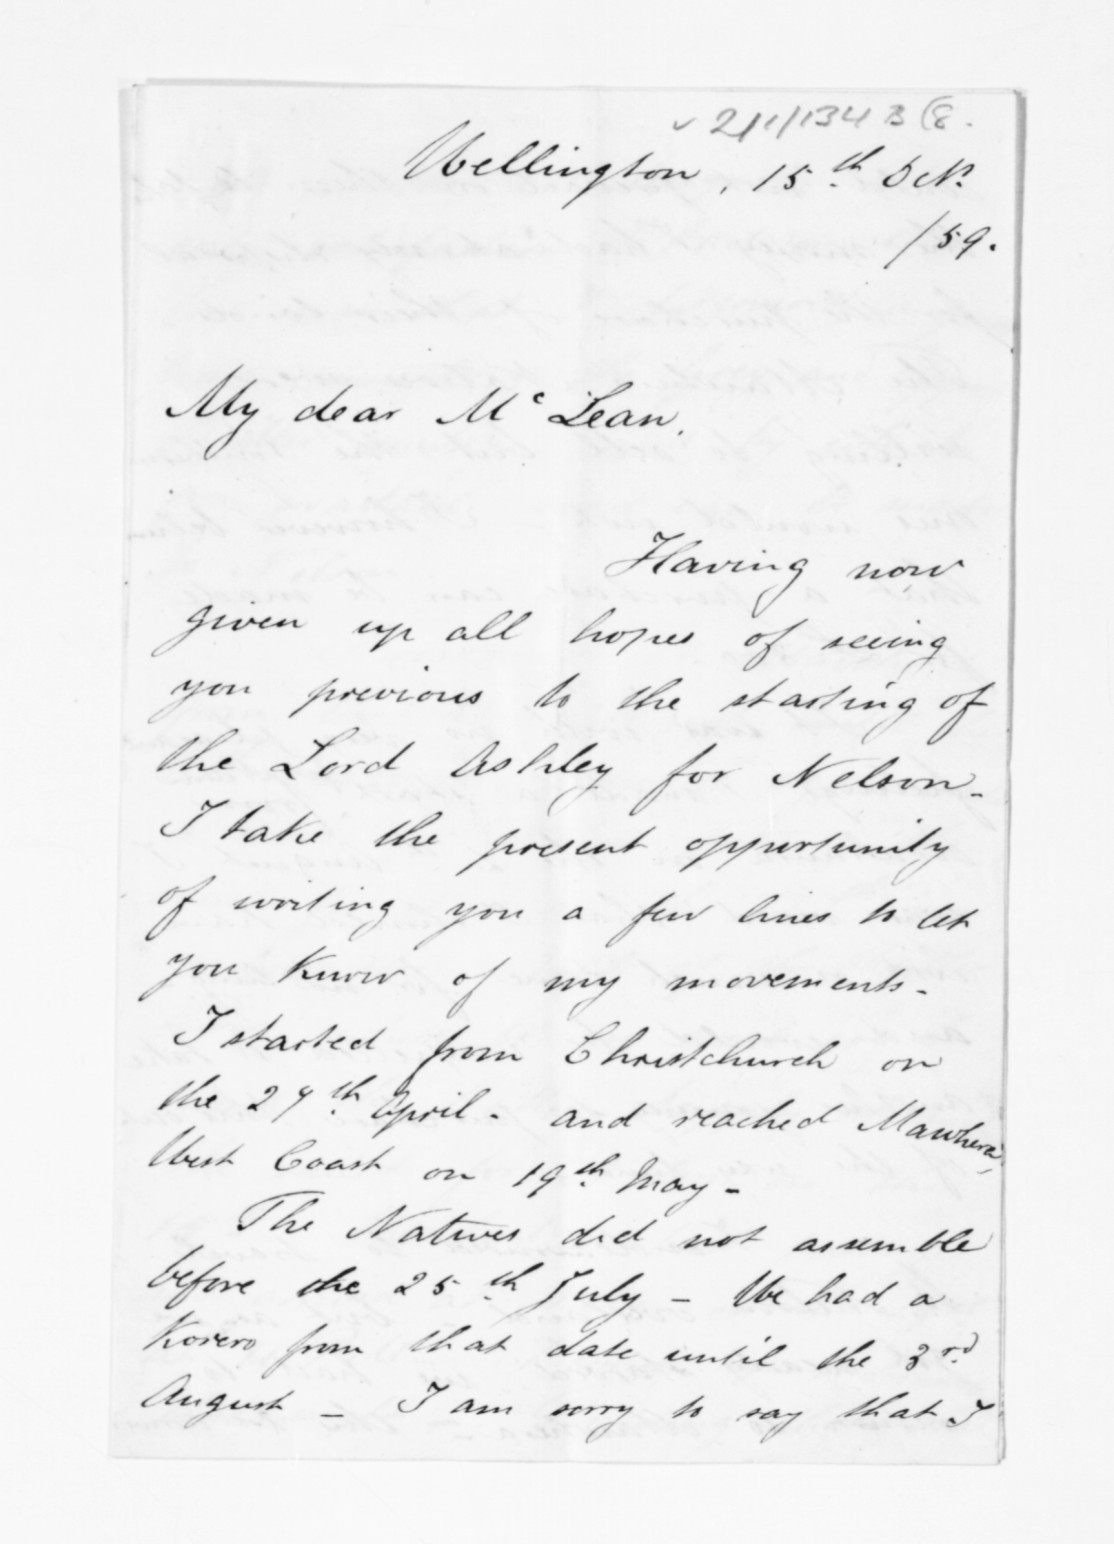 2/1/134 B (8.
Wellington, 15th Oct.
/59.
My dear McLean.
Having now
given up all hopes of seeing
you previous to the starting of
the Lord Ashley for Nelson -
I take the present opportunity
of writing you a few lines to let
you know of my movements -
I started from Christchurch on
the 27th April - and reached Mawhera,
West Coast on 19th May -
The Natives did not assemble
before the 25th July - We had a
Korero from that date until the 3rd
August - I am sorry to say that I